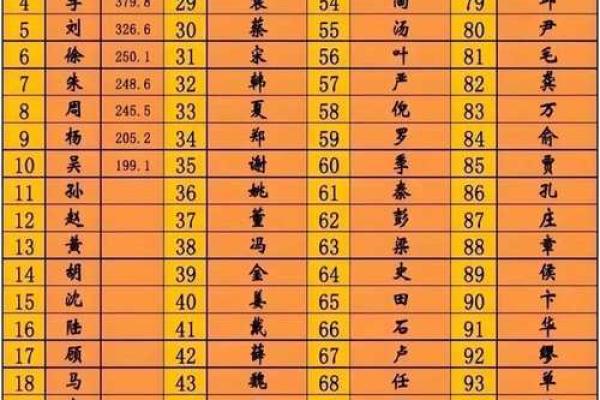 4 李 379.8 29 袁 54 陶 79
5 刘 326.6 30 蔡 55 汤 80 尹
6 徐 250.1 31 宋 56 叶 81 毛
7 朱 248.6 32 韩 57 严 82 龚
8 周 245.5 33 夏 58 倪 83 万
9 杨 205.2 34 郑 59 罗 84 俞
10 吴 199.1 35 谢 60 季 85 贾
11 孙 36 姚 61 秦 86 孔
12 赵 37 董 62 彭 87 庄
13 黄 38 冯 63 梁 88 章
14 胡 39 金 64 史 89 侯
15 沈 40 姜 65 田 90 卞
16 陆 41 戴 66 石 91 华
17 顾 42 薛 67 卢 92 缪
18 马 43 魏 68 任 93 单